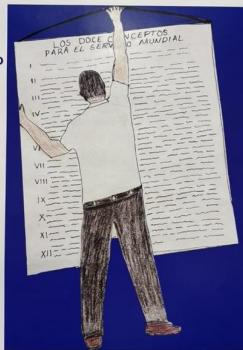 LOS DOCE CONCEPTOS
PARA EL SERVICIO MUNDIAL
I
II
III
IV
VI
VII
VIII
IX
X
XI
XII